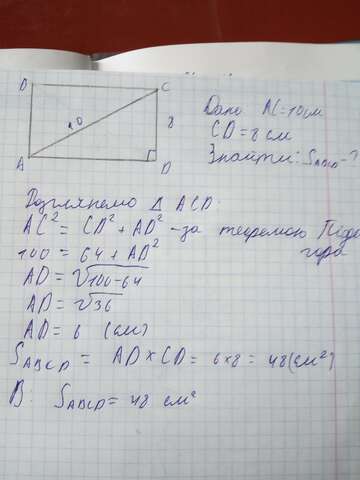 B C
10 8
A D
Дано AC=10см
CD=8см
Знайти: S_ABCD-?
Розглянемо Δ ACD
AC² = CD² + AD² - за теоремою Піфа
гора
100 = 64 + AD²
AD = √100-64
AD = √36
AD = 6 (см)
S_ABCD = AD×CD = 6×8 = 48(см²)
В: S_ABCD = 48 см²